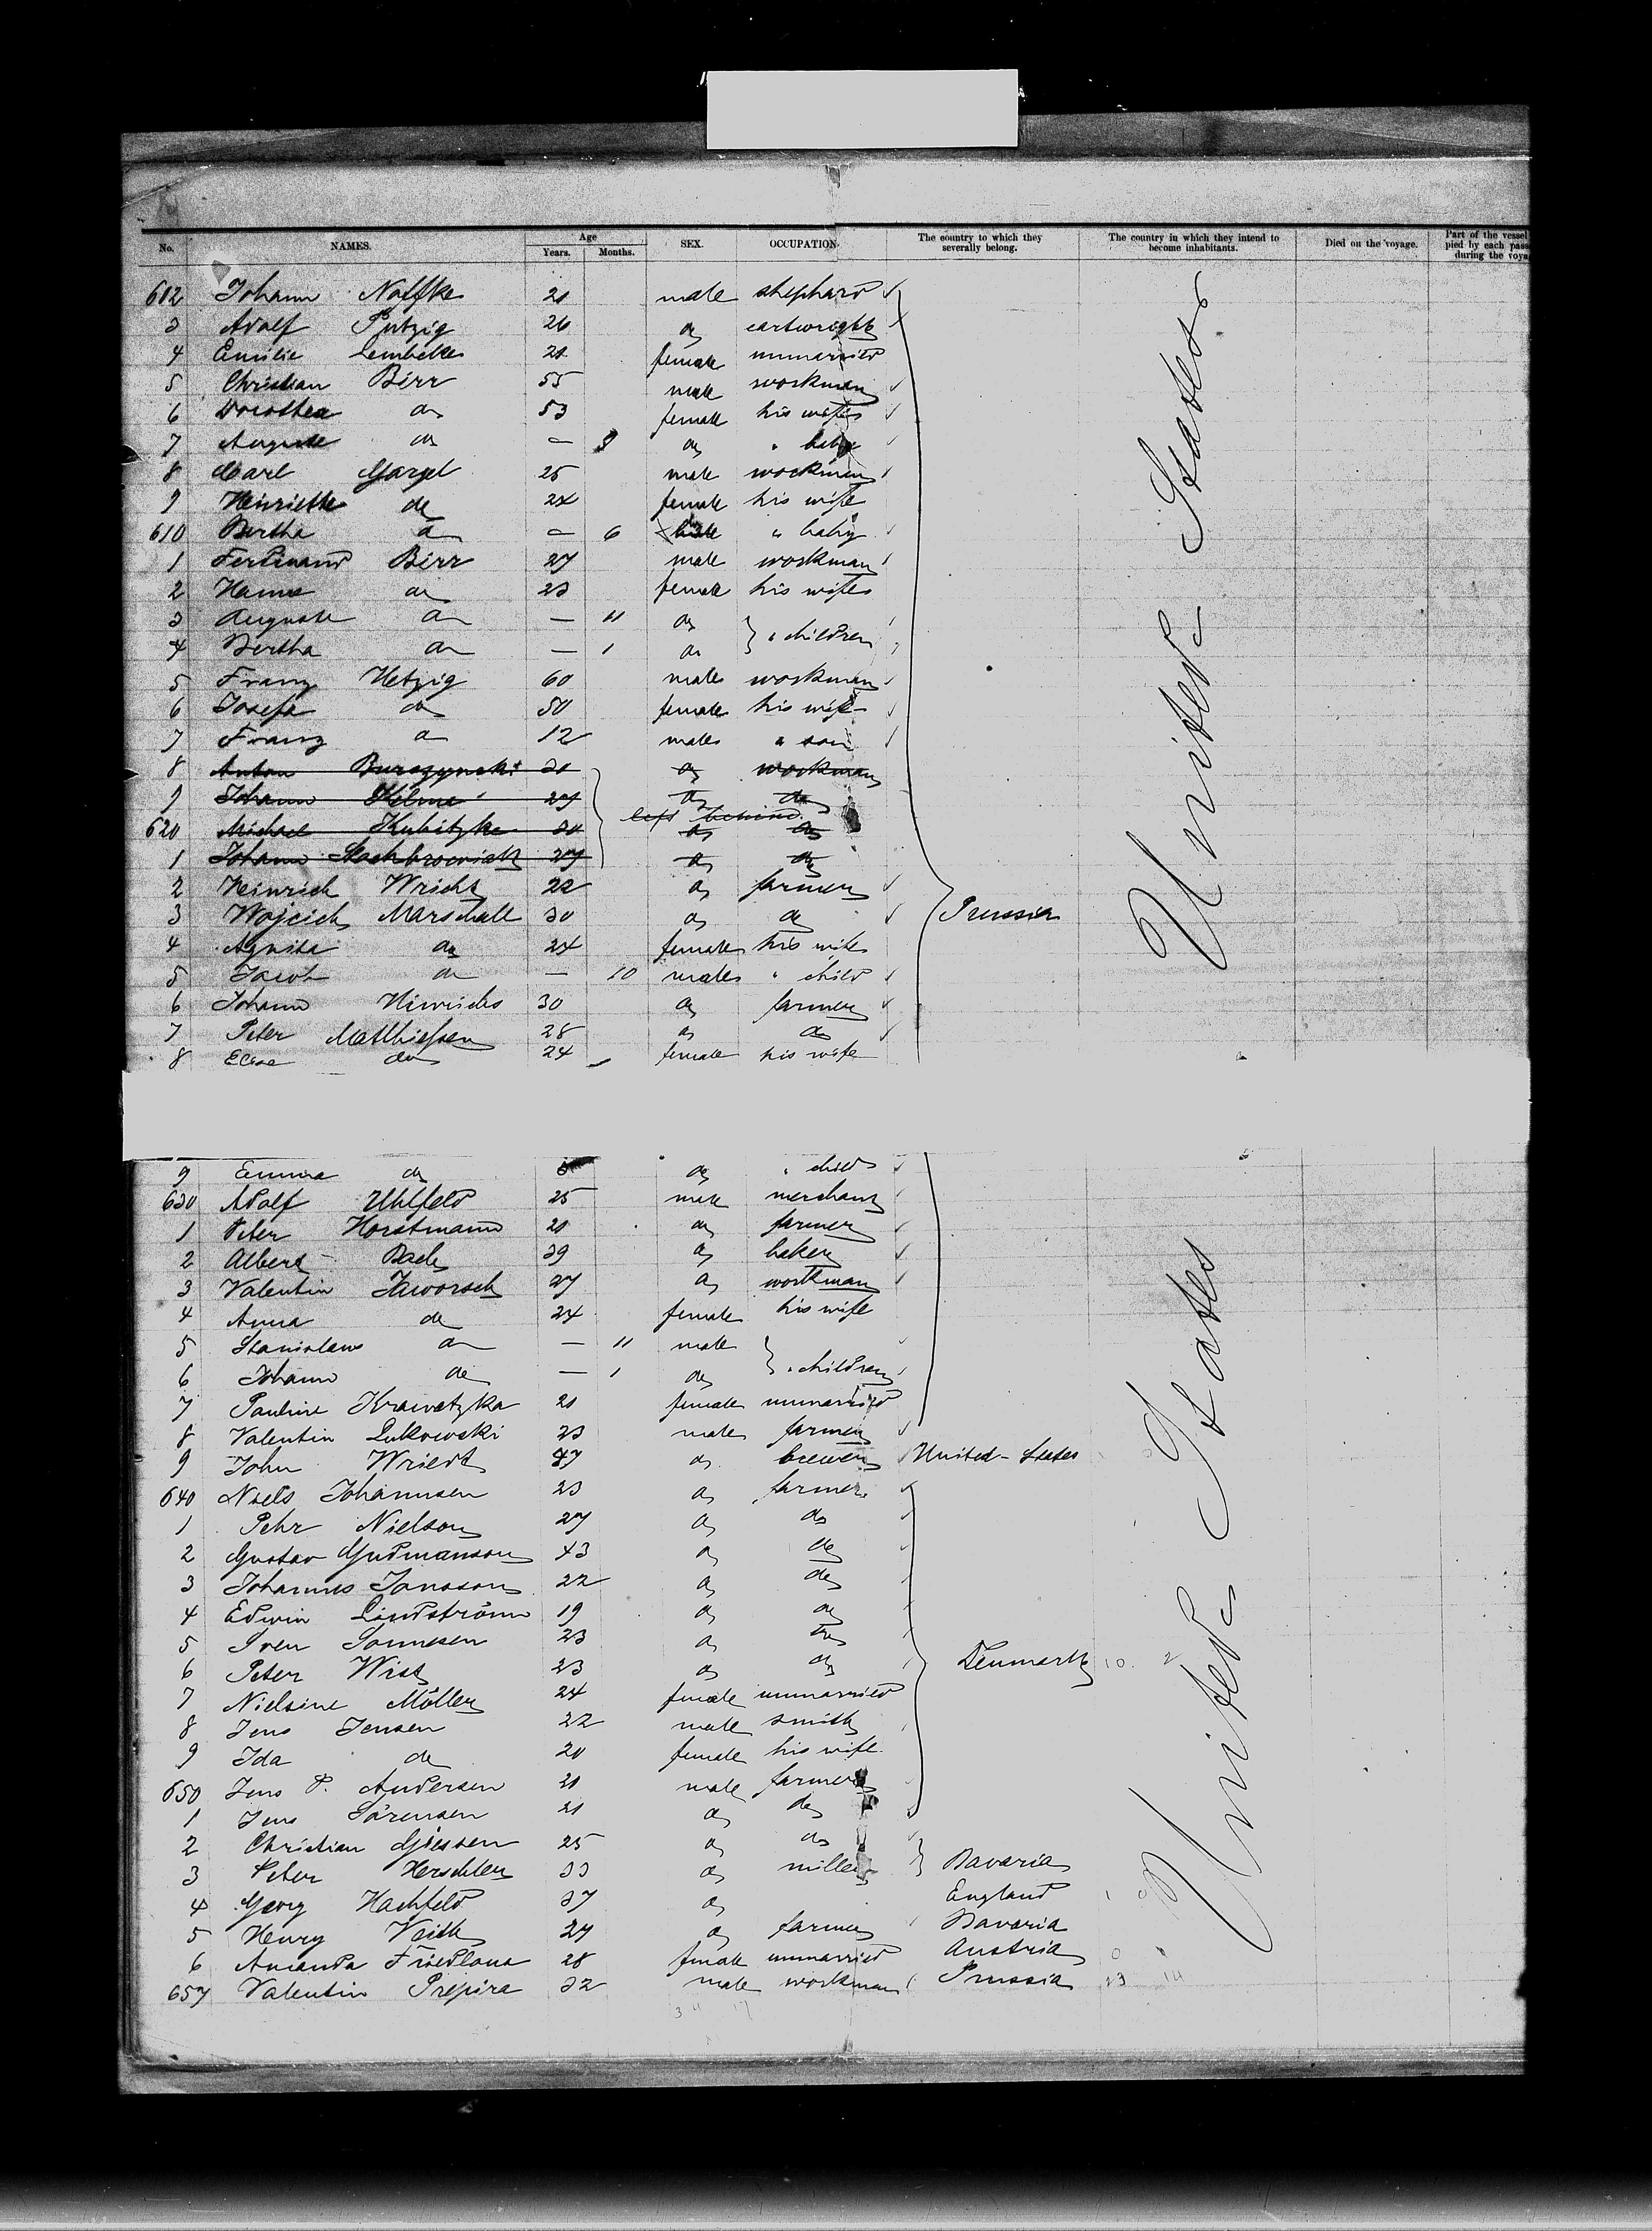 No. NAMES. Age Years. Months. SEX. OCCUPATION. The country to which they severally belong. The country in which they intend to become inhabitants. Died on the voyage. Part of the vessel pied by each pass during the voya
602 Johann Noffke 21 male shephard
3 Adolf Putzig 26 do cartwright
4 Emilie Lembcke 21 female unmarried
5 Christian Birr 55 male workman
6 Dorothea do 53 female his wife
7 Auguste do — 9 do " baby
8 Carl 25 male workman
9 Henriette do 24 female his wife
610 Bertha do — 6 " baby
1 Ferdinand Birr 27 male workman
2 Hanna do 23 female his wife
3 Auguste do — 11 do
4 Bertha do — 1 do " children
5 Franz Hetzig 60 male workman
6 Josefa do 50 female his wife
7 Franz do 12 male " son
8 Anton Burszynski do workman
9 Johann 27 do do
left behind
620 Michael Kubitzke 30 do do
1 Johann 27 do do
2 Heinrich Wricht 22 do farmer
3 Wojcich Marschall 30 do do Prussia
4 do 24 female his wife
5 Jacob do — 10 male " child
6 Johann Hinrichs 30 do farmer
7 Peter Matthiessen 28 do do
8 Elise do 24 female his wife
United States
9 Emma do do " child
630 Adolf Uhlfeld 25 male merchant
1 Peter Horstmann 21 do farmer
2 Albert Bach 39 do baker
3 Valentin Jaworsek 27 do workman
4 Anna do 24 female his wife
5 Stanislaus do — 11 male
6 Johann do — 1 do " children
7 Pauline Krawetzka 21 female unmarried
8 Valentin Lukowski 23 male farmer
9 John Wriedt 47 do brewer United-States
640 Niels Johannsen 23 do farmer
1 Pehr Nielson 27 do do
2 Gustav Gudmanson 43 do do
3 Johannes Jonsson 22 do do
4 Edwin Lindström 19 do do
5 Sven Sonnesen 23 do do
6 Peter Wist 23 do do Denmark
7 Nielsine Möller 24 female unmarried
8 Jens Jensen 22 male smith
9 Ida do 20 female his wife
650 Jens P. Andersen 21 male farmer
1 Jens Sörensen 21 do do
2 Christian Gjessen 25 do do
3 Peter Herschler 33 do miller Bavaria
4 Georg Hachfeld 37 do England
5 Henry Veith 27 do farmer Bavaria
6 Amanda 28 female unmarried Austria
657 Valentin Prepira 32 male workman Prussia
United States